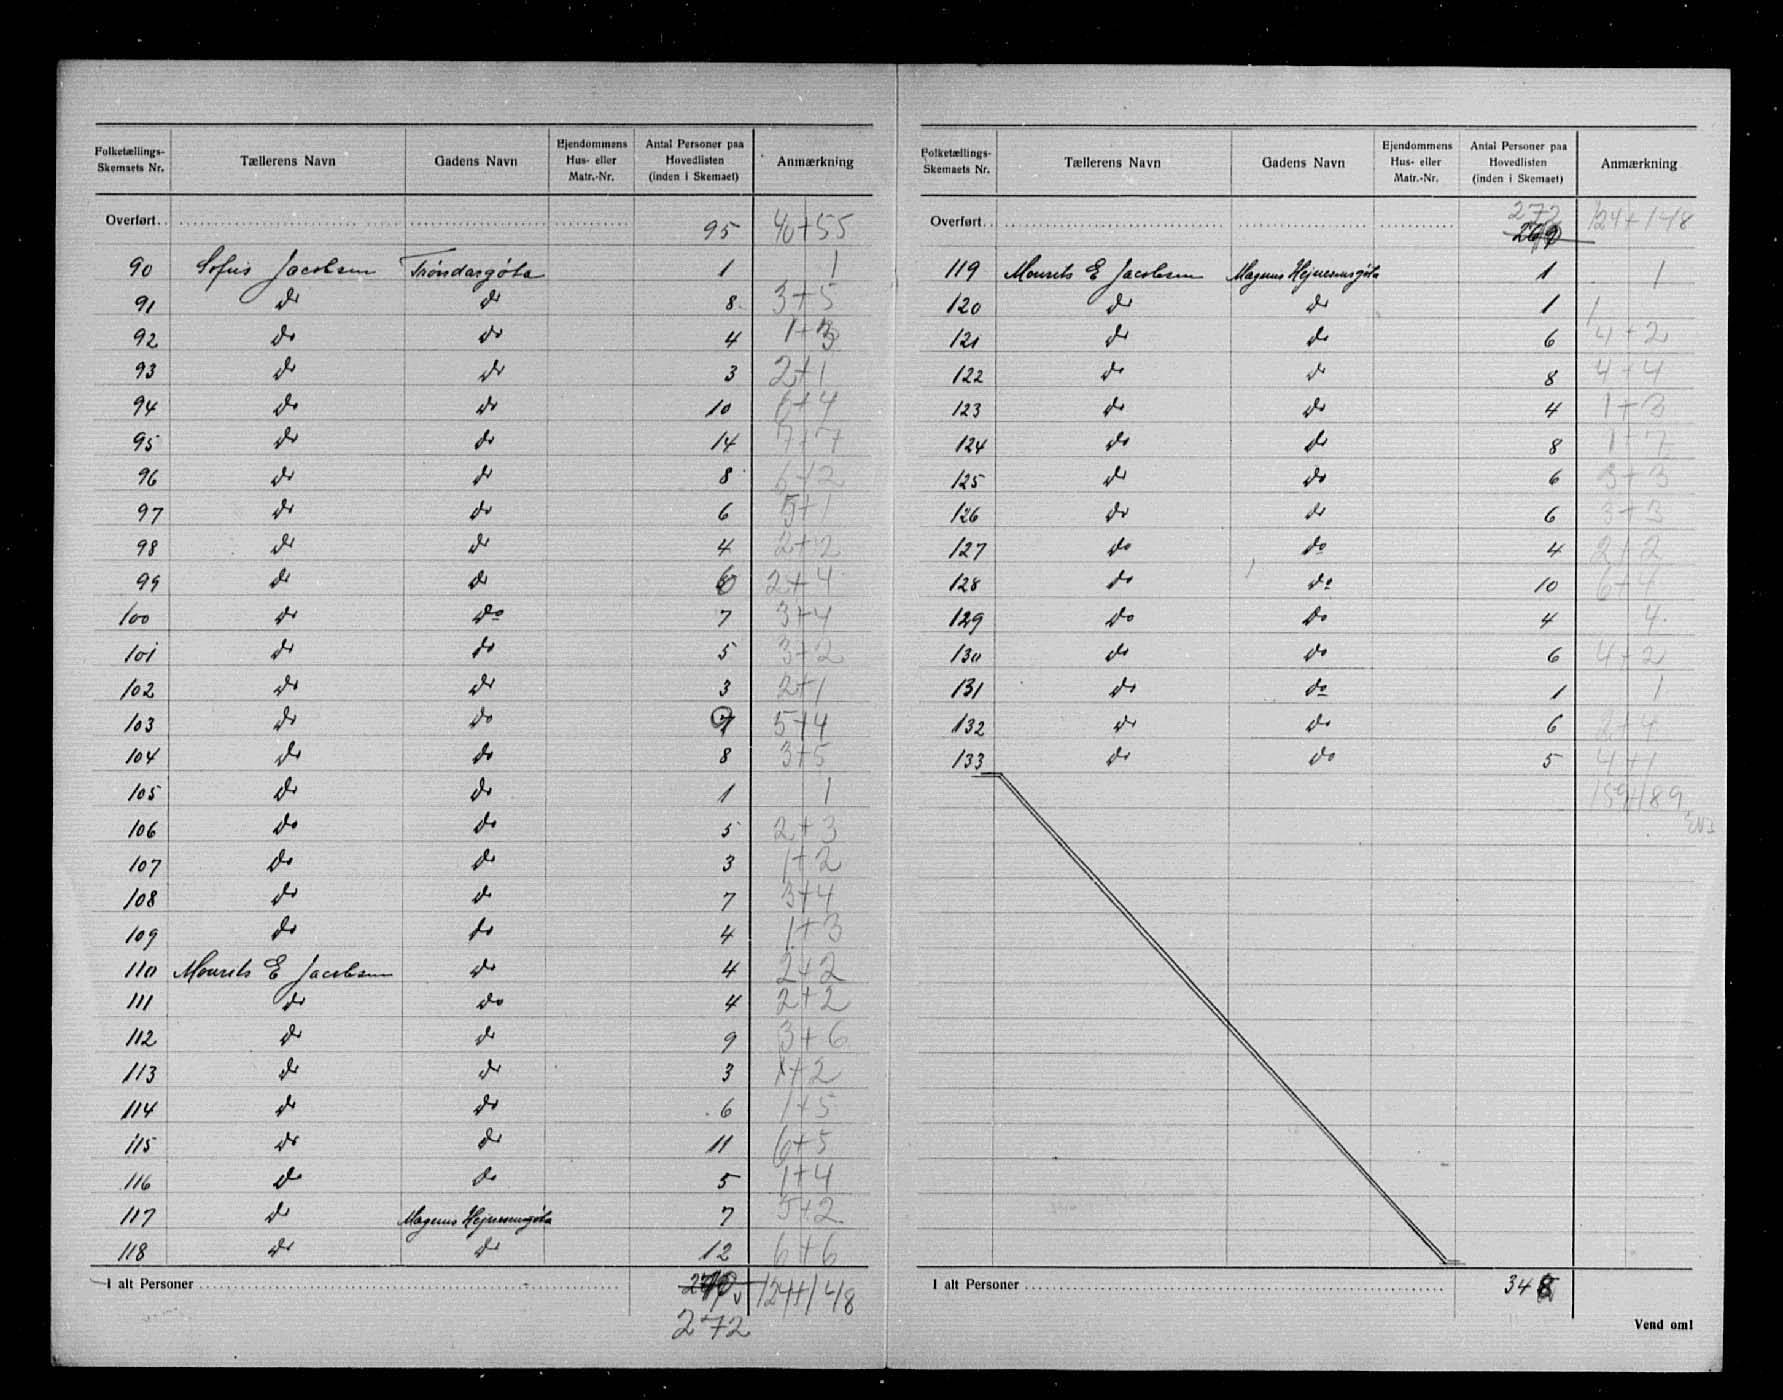 Folketællings-Skemaets Nr. Tællerens Navn Gadens Navn Ejendommens Hus- eller Matr.-Nr. Antal Personer paa Hovedlisten (inden i Skemaet) Anmærkning
Overført 95 40+55
90 Sofus Jacobsen Tróndargóta 1 1
91 do do 8 3+5
92 do do 4 1+3
93 do do 3 2+1
94 do do 10 6+4
95 do do 14 7+7
96 do do 8 6+2
97 do do 6 5+1
98 do do 4 2+2
99 do do 6 2+4
100 do do 7 3+4
101 do do 5 3+2
102 do do 3 2+1
103 do do 9 5+4
104 do do 8 3+5
105 do do 1 1
106 do do 5 2+3
107 do do 3 1+2
108 do do 7 3+4
109 do do 4 1+3
110 Mourits E Jacobsen do 4 2+2
111 do do 4 2+2
112 do do 9 3+6
113 do do 3 1+2
114 do do 6 1+5
115 do do 11 6+5
116 do do 5 1+4
117 do Magnus Hejnesunsgóta 7 5+2
118 do do 12 6+6
I alt Personer 124+148
272
Folketællings-Skemaets Nr. Tællerens Navn Gadens Navn Ejendommens Hus- eller Matr.-Nr. Antal Personer paa Hovedlisten (inden i Skemaet) Anmærkning
Overført 272 124+148
119 Mourits E Jacobsen Magnus Hejnesunsgóta 1 1
120 do do 1 1
121 do do 6 4+2
122 do do 8 4+4
123 do do 4 1+3
124 do do 8 1+7
125 do do 6 3+3
126 do do 6 3+3
127 do do 4 2+2
128 do do 10 6+4
129 do do 4 4
130 do do 6 4+2
131 do do 1 1
132 do do 6 2+4
133 do do 5 4+1
159+189
I alt Personer 348
Vend om!